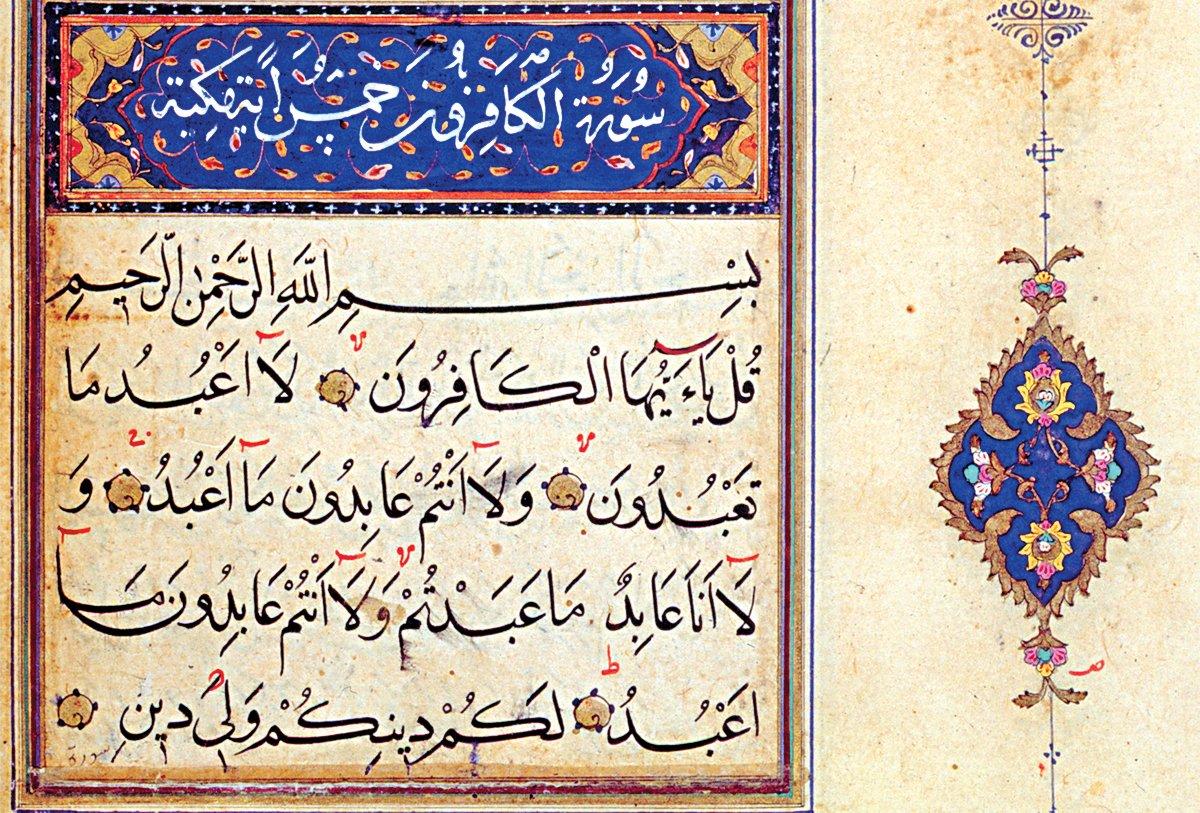 سُورَةُ الْكَافِرُونَ خَمْسُ اٰيَةٍ مَكِّيَّة
بِسْمِ اللّٰهِ الرَّحْمٰنِ الرَّحِيمِ
قُلْ يَاءَيُّهَا الْكَافِرُونَ لَٓا اَعْبُدُ مَا
تَعْبُدُونَ وَلَٓا اَنْتُمْ عَابِدُونَ مَٓا اَعْبُدُ وَ
لَٓا اَنَا عَابِدٌ مَا عَبَدْتُمْ وَلَٓا اَنْتُمْ عَابِدُونَ مَٓا
اَعْبُدُ لَكُمْ دِينُكُمْ وَلِىَ دِينِ
سورة